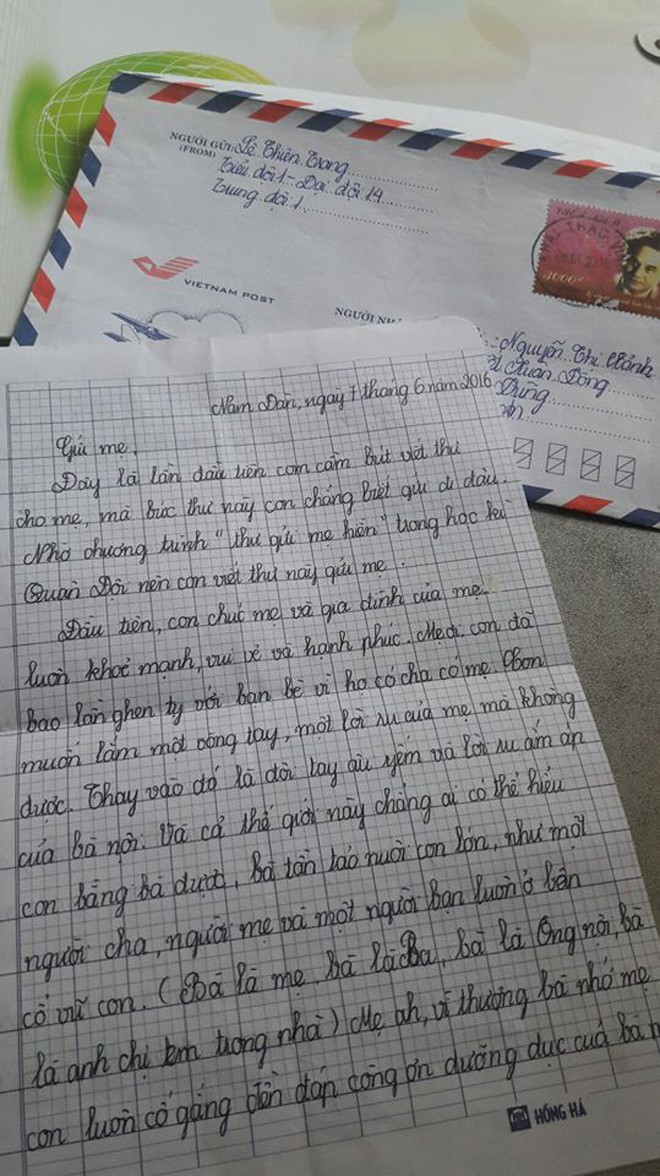 NGƯỜI GỬI: Lê Thiên Trang
(FROM)
Tiểu đội 1 - Đại đội 14
Trung đội 1
VIETNAM POST
3000đ
NGƯỜI NH
Nguyễn Thị Hảnh
Xuân Đông
Dũng
Nam Đàn, ngày 7 tháng 6 năm 2016
Gửi mẹ,
Đây là lần đầu tiên con cầm bút viết thư
cho mẹ, mà bức thư này con chẳng biết gửi đi đâu.
Nhờ chương trình "thư gửi mẹ hiền" trong học kì
Quân Đội nên con viết thư này gửi mẹ.
Đầu tiên, con chúc mẹ và gia đình của mẹ
luôn khoẻ mạnh, vui vẻ và hạnh phúc. Mẹ ơi, con đã
bao lần ghen tỵ với bạn bè vì họ có cha có mẹ. Con
muốn lắm một vòng tay, một lời ru của mẹ mà không
được. Thay vào đó là đôi tay âu yếm và lời ru ấm áp
của bà nội. Và cả thế giới này chẳng ai có thể hiểu
con bằng bà được, bà tần tảo nuôi con lớn, như một
người cha, người mẹ và một người bạn luôn ở bên
cổ vũ con. (Bà là mẹ, bà là Ba, bà là Ông nội, bà
là anh chị em trong nhà) Mẹ ah, vì thương bà nhớ mẹ
con luôn cố gắng đền đáp công ơn dưỡng dục của bà
HỒNG HÀ